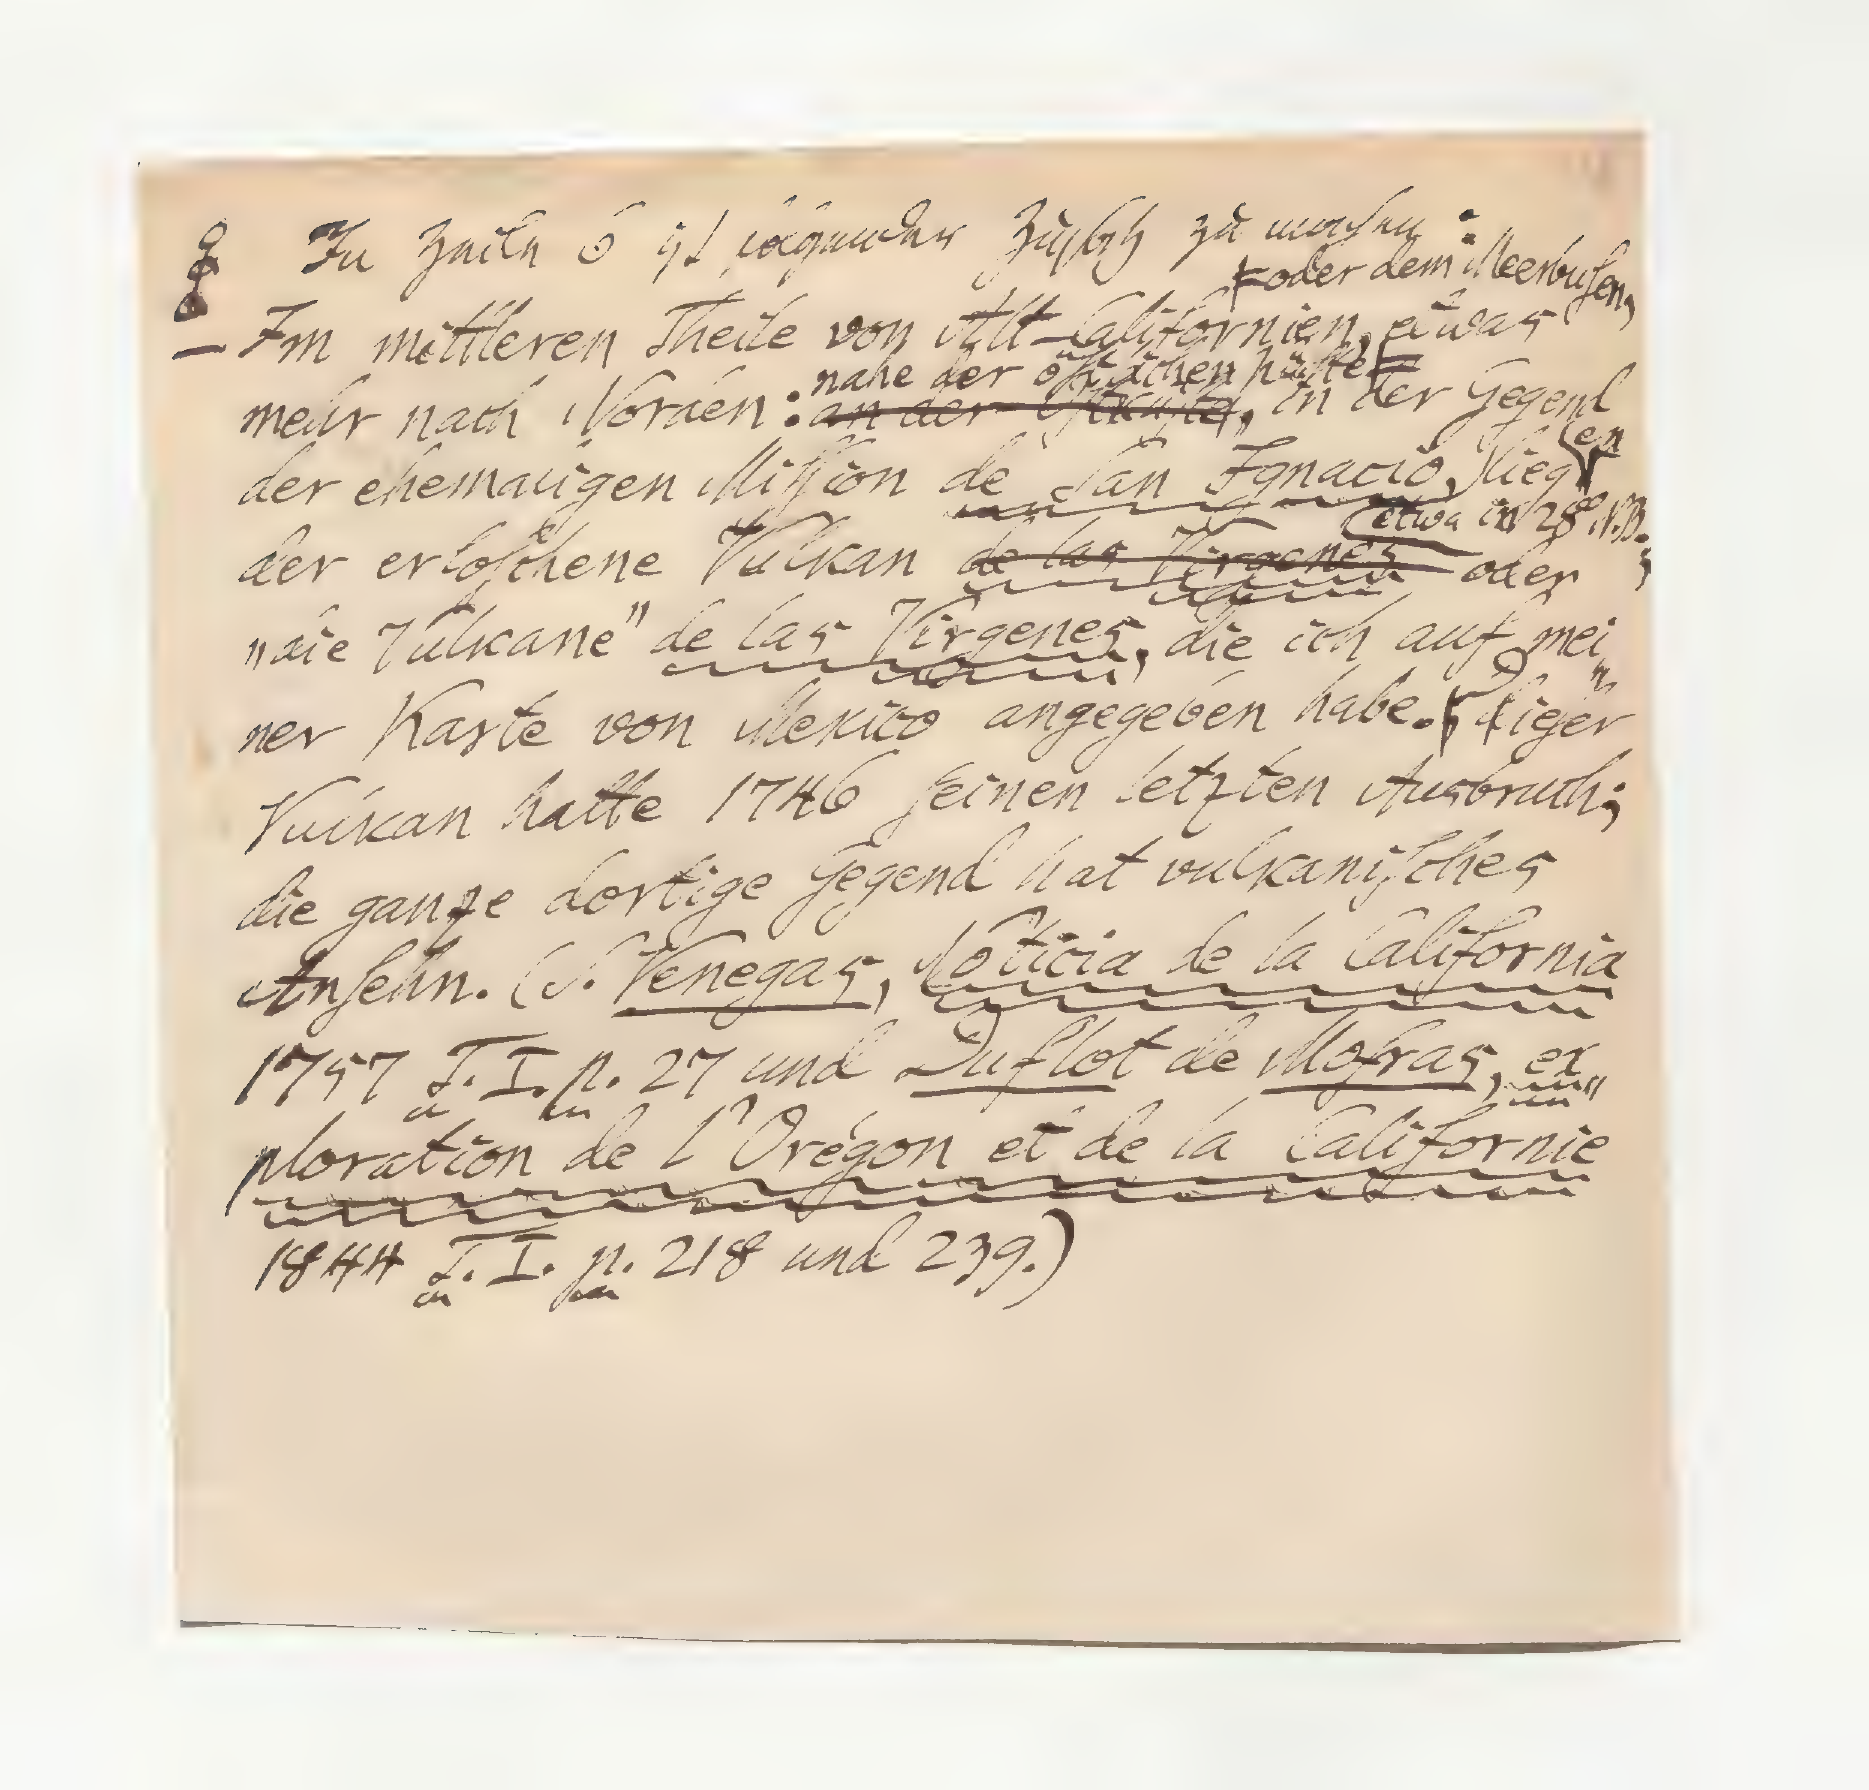 In Zeile 6 ist folgender Zusatz zu machen:
⌈oder dem Meerbusen,
— Im mittleren Theile von Alt-Californien, etwas
nahe der östlichen Küste
mehr nach Norden: an der Ostküste, in der Gegend
en
der ehemaligen Mission de San Ignacio, lieg
(etwa in 28° N.B.;
der erloschene Vulkan de las Virgenes oder
„die Vulkane" de las Virgenes, die ich auf mei„
ner Karte von Mexico angegeben habe. Dieser
Vulkan hatte 1746 seinen letzten Ausbruch;
die ganze dortige Gegend hat vulkanisches
Ansehn. (S. Venegas, Noticia de la California
1757 T. I. p. 27 und Duflot de Mofras, ex„
ploration de l'Orégon et de la Californie
1844 T. I. p. 218 und 239.)